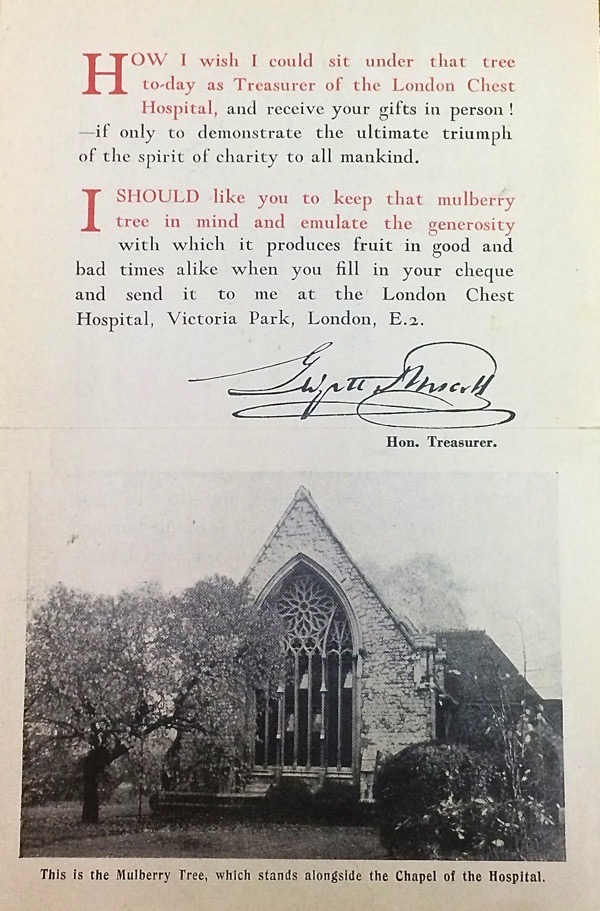 HOW I wish I could sit under that tree
to-day as Treasurer of the London Chest
Hospital, and receive your gifts in person !
—if only to demonstrate the ultimate triumph
of the spirit of charity to all mankind.
I SHOULD like you to keep that mulberry
tree in mind and emulate the generosity
with which it produces fruit in good and
bad times alike when you fill in your cheque
and send it to me at the London Chest
Hospital, Victoria Park, London, E.2.
Hon. Treasurer.
This is the Mulberry Tree, which stands alongside the Chapel of the Hospital.